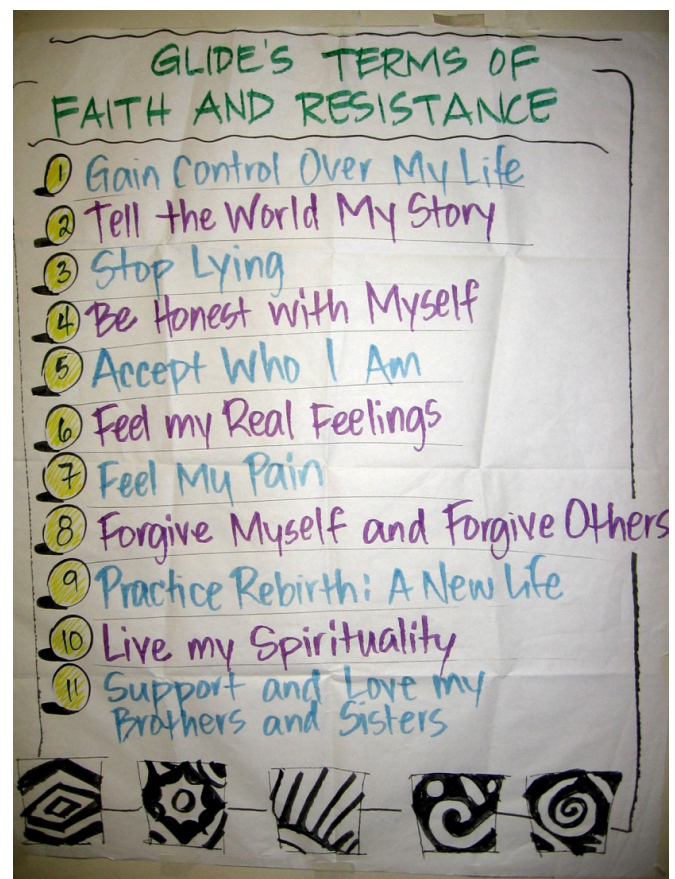 GLIDE'S TERMS OF
FAITH AND RESISTANCE
1 Gain Control Over My Life
2 Tell the World My Story
3 Stop Lying
4 Be Honest with Myself
5 Accept Who I Am
6 Feel my Real Feelings
7 Feel My Pain
8 Forgive Myself and Forgive Others
9 Practice Rebirth: A New Life
10 Live my Spirituality
11 Support and Love my
Brothers and Sisters